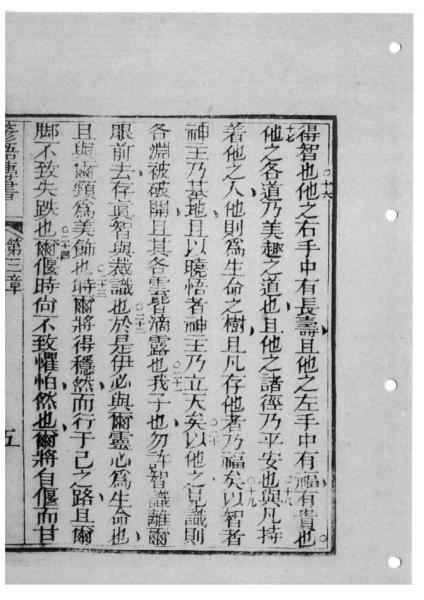 得智也他之右手中有長壽且他之左手中有福有貴也
他之各道乃美趣之道也且他之諸徑乃平安也與凡持
着他之人他則爲生命之樹且凡存他者乃福矣以智者
神主乃基地且以曉悟者神主乃立天矣以他之見識則
各淵被破開且其各雲皆滴露也我子也勿許智議離爾
眼前去存眞智與裁議也於是伊必與爾靈心爲生命也
且與爾頸爲美飾也時爾將得穩然而行于己之路且爾
脚不致失跌也爾偃時尙不致懼怕然也爾將自偃而甘
第三章
五